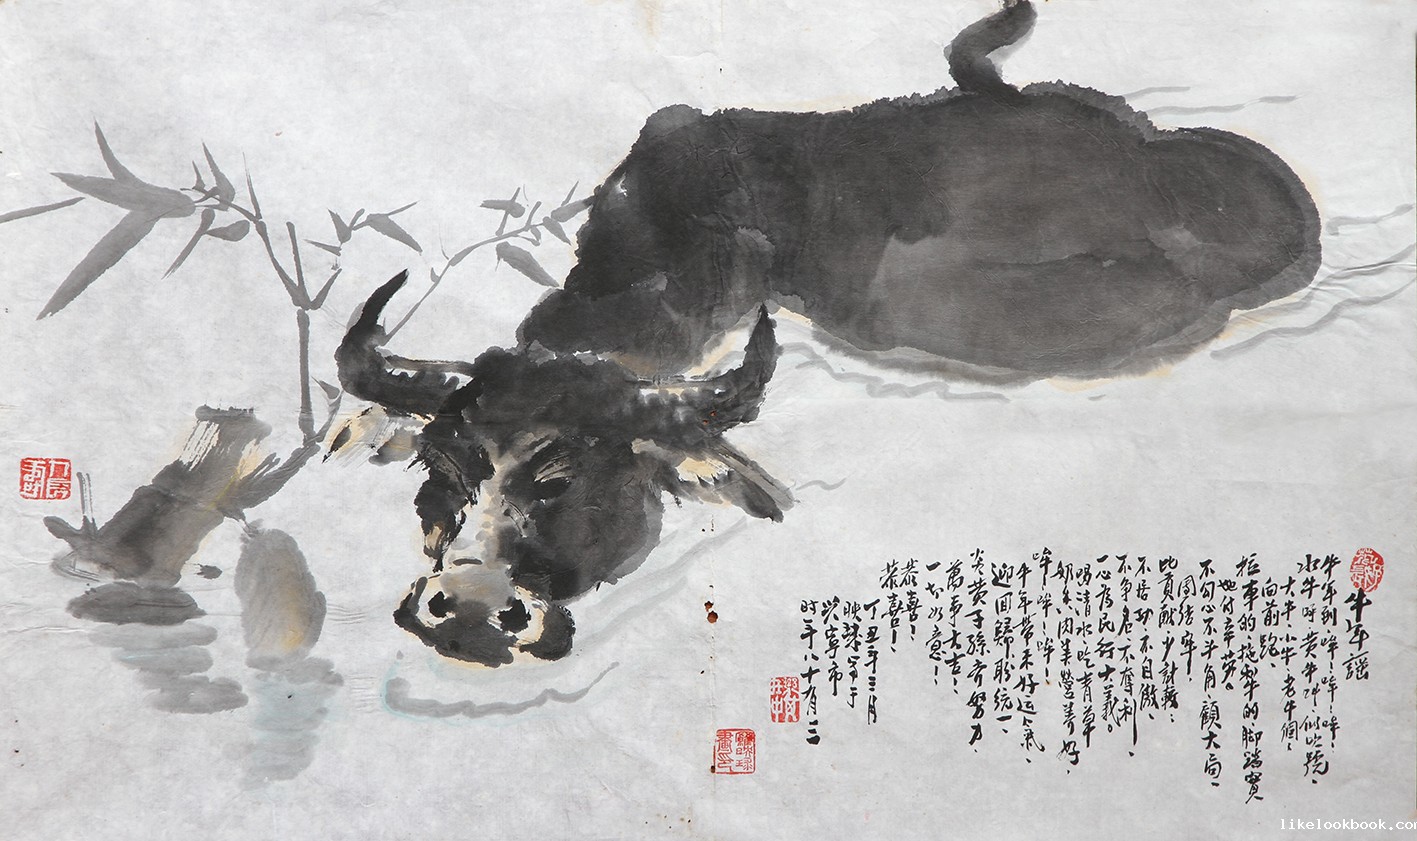 牛年謡
牛年到哞！哞！哞！
水牛呼黄牛呼似吹號、
大牛小牛老牛個！
向前跑、
拉車的、拖犁的脚踏實
地付辛劳。
不勾心不斗角顧大局！
團结牢、
比貢献少計较：
不居功不自傲、
不争名不奪利、
一心為民行大義。
喝清水吃青草
奶多肉美營養好、
哞！哞！哞！
牛年带来好运氣、
迎回歸盼統一、
炎黄子孫齐努力、
萬事大吉！
一切如意！
恭喜！
恭喜！
丁丑年三月
映球写于
兴寧市
时年八十有二
likelookbook.com